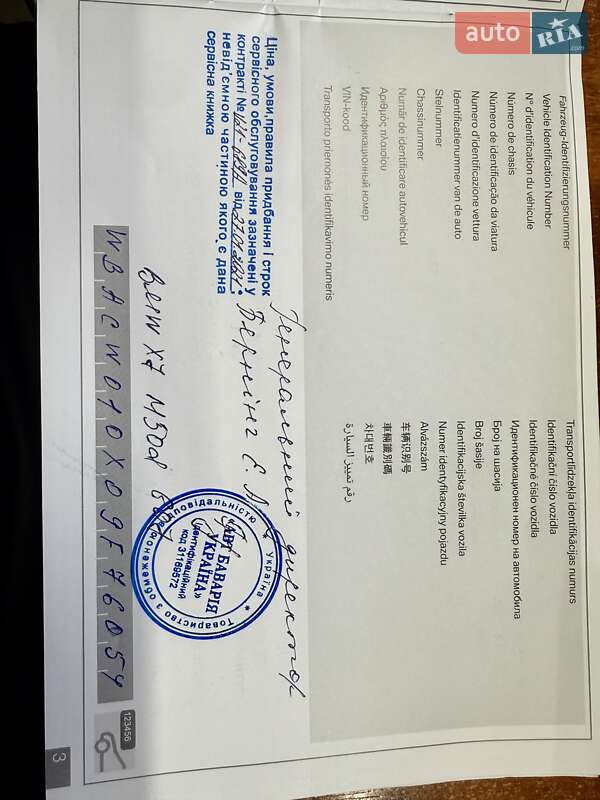 auto RIA.com
Fahrzeug-Identifizierungsnummer
Vehicle Identification Number
N° d'identification du véhicule
Número de chasis
Número de identificação da viatura
Numero d'identificazione vettura
Identificatienummer van de auto
Stelnummer
Chassinummer
Număr de identificare autovehicul
Αριθμός πλαισίου
Идентификационный номер
VIN-kood
Transporto priemonės identifikavimo numeris
Transportlīdzekļa identifikācijas numurs
Identifikační číslo vozidla
Identifikačné číslo vozidla
Идентификационен номер на автомобила
Број на шасија
Broj šasije
Identifikacijska številka vozila
Numer identyfikacyjny pojazdu
Alvázszám
车辆识别号
車輛識別碼
차대번호
رقم تمييز السيارة
Ціна, умови,правила придбання і строк
сервісного обслуговування зазначені у
контракті № від 27.01.2021 є
невід'ємною частиною якого є дана
сервісна книжка
Генеральний директор
Дернінг Є. А.
BMW X7 M50d
WBACW010X09F76054
Україна
Товариство з обмеженою відповідальністю
«АВТ БАВАРІЯ
УКРАЇНА»
Ідентифікаційний
код 31169572
123456
3